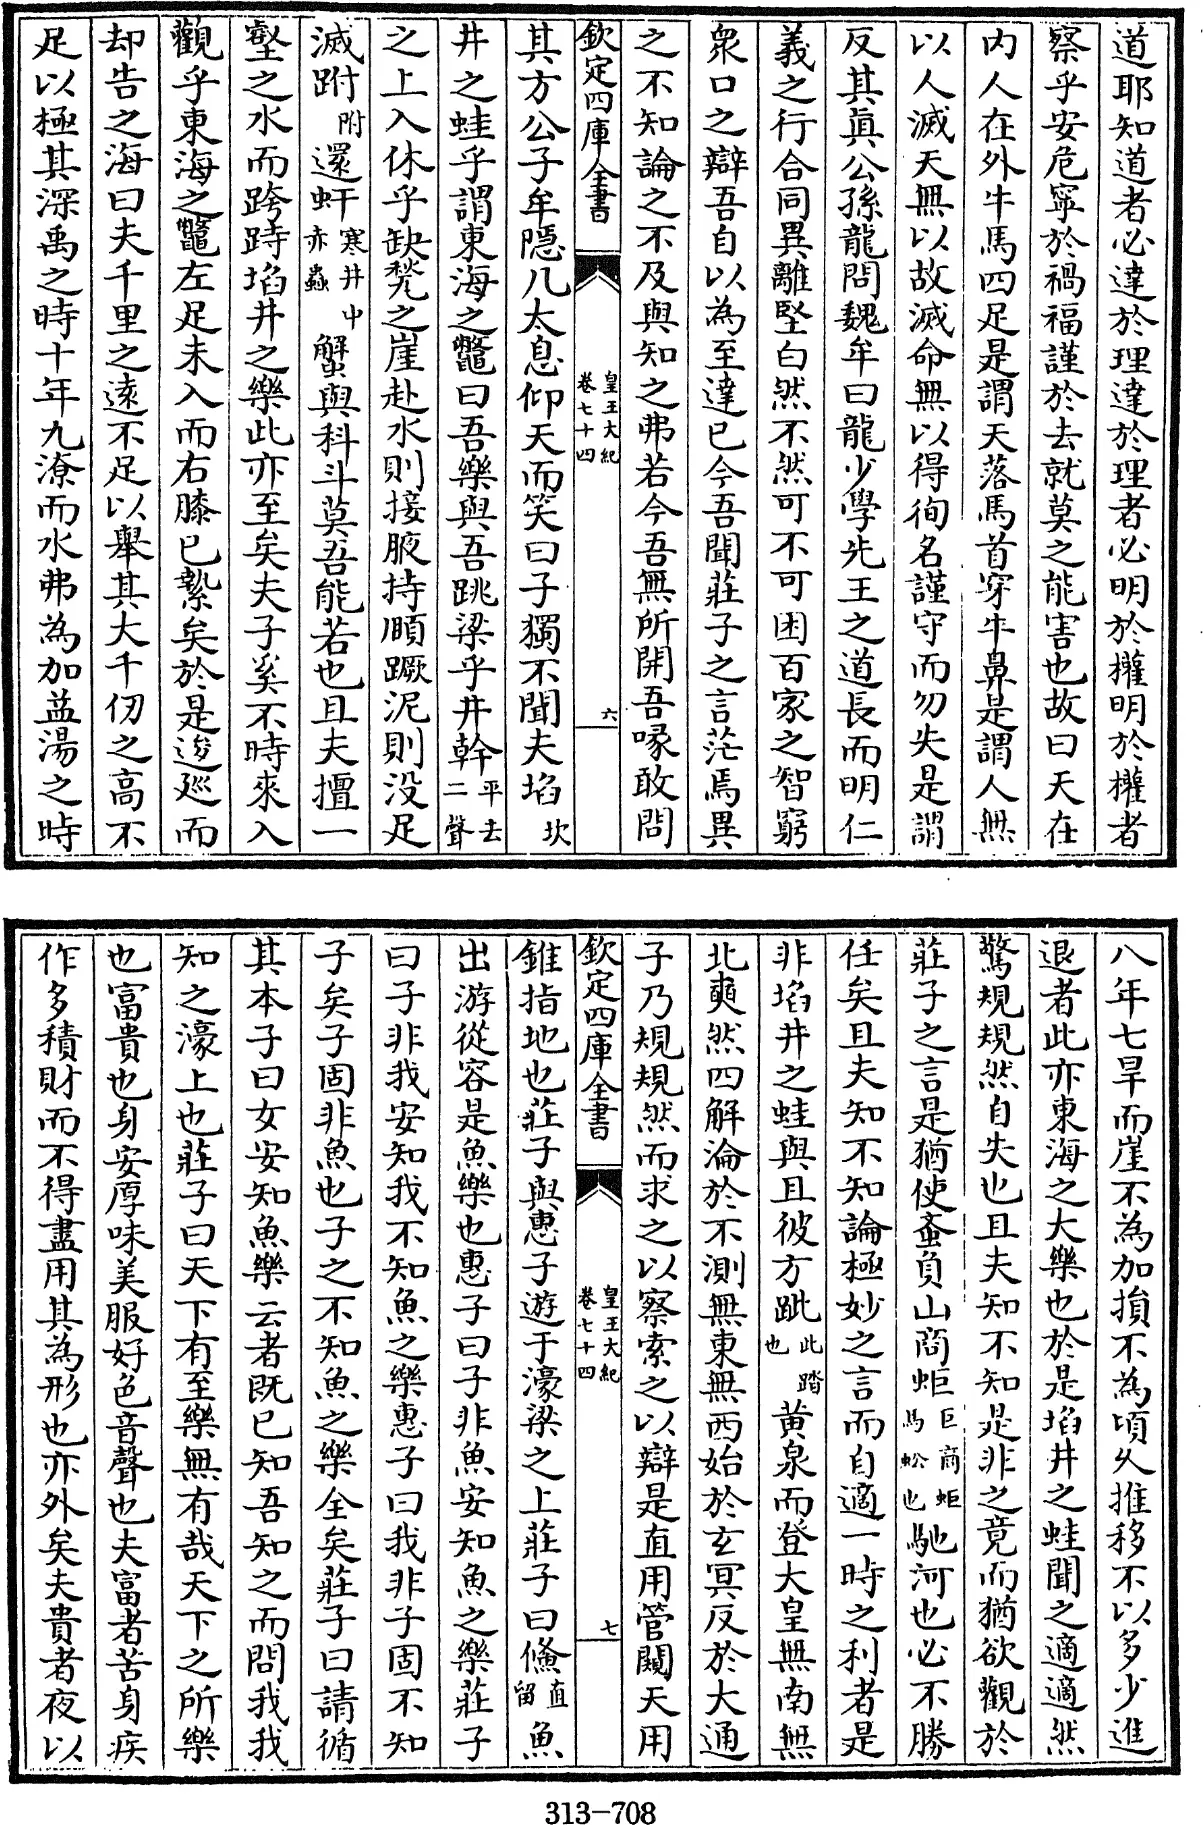 道耶知道者必達於理達於理者必明於權明於權者
察乎安危寧於禍福謹於去就莫之能害也故曰天在
内人在外牛馬四足是謂天落馬首穿牛鼻是謂人無
以人滅天無以故滅命無以得徇名謹守而勿失是謂
反其真公孫龍問魏牟曰龍少學先王之道長而明仁
義之行合同異離堅白然不然可不可困百家之智窮
衆口之辯吾自以為至達已今吾聞莊子之言茫焉異
之不知論之不及與知之弗若今吾無所開吾喙敢問
欽定四庫全書
皇王大紀
卷七十四
六
其方公子牟隱几太息仰天而笑曰子獨不聞夫埳坎
井之蛙乎謂東海之鼈曰吾樂與吾跳梁乎井幹平去二聲
之上入休乎缺甃之崖赴水則接腋持頤蹶泥則没足
滅跗附還虷寒井中赤蟲蟹與科斗莫吾能若也且夫擅一
壑之水而跨跱埳井之樂此亦至矣夫子奚不時來入
觀乎東海之鼈左足未入而右膝已縶矣於是逡廵而
却告之海曰夫千里之遠不足以舉其大千仞之高不
足以極其深禹之時十年九潦而水弗為加益湯之時
八年七旱而崖不為加損不為頃久推移不以多少進
退者此亦東海之大樂也於是埳井之蛙聞之適適然
驚規規然自失也且夫知不知是非之竟而猶欲觀於
莊子之言是猶使蚉負山商蚷巨商蚷馬蚿也馳河也必不勝
任矣且夫知不知論極妙之言而自適一時之利者是
非埳井之蛙與且彼方跐此踏也黄泉而登大皇無南無
北奭然四解淪於不測無東無西始於玄冥反於大通
子乃規規然而求之以察索之以辯是直用管闚天用
欽定四庫全書
皇王大紀
卷七十四
七
錐指地也莊子與惠子遊于濠梁之上莊子曰鯈直留魚
出游從容是魚樂也惠子曰子非魚安知魚之樂莊子
曰子非我安知我不知魚之樂惠子曰我非子固不知
子矣子固非魚也子之不知魚之樂全矣莊子曰請循
其本子曰女安知魚樂云者既已知吾知之而問我我
知之濠上也莊子曰天下有至樂無有哉天下之所樂
也富貴也身安厚味美服好色音聲也夫富者苦身疾
作多積財而不得盡用其為形也亦外矣夫貴者夜以
313-708